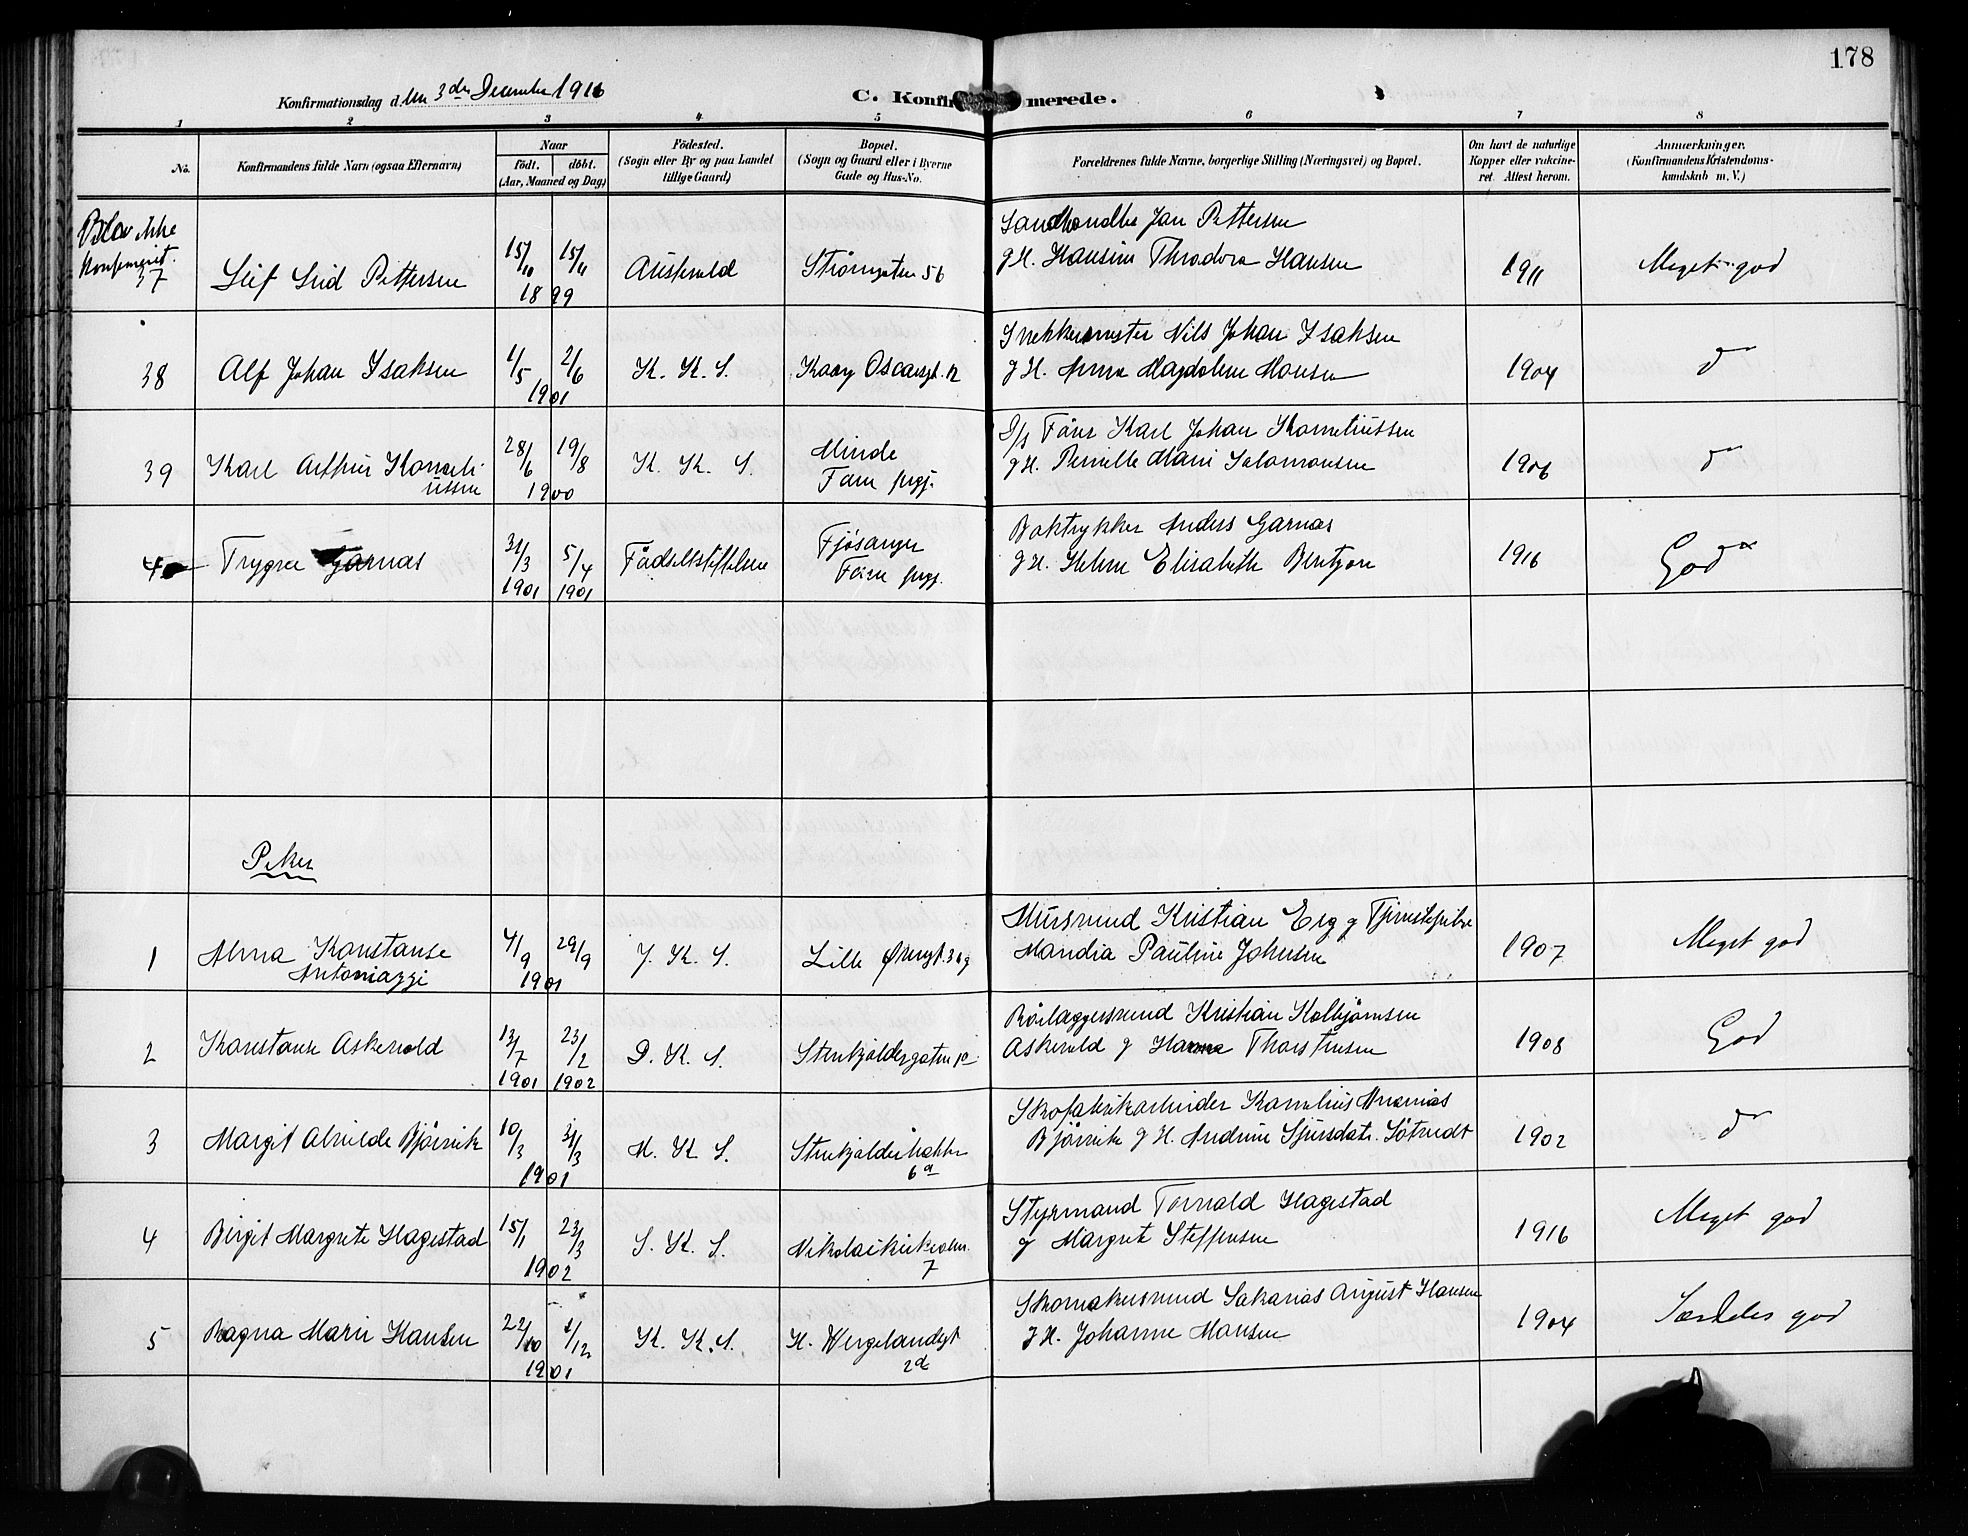 178
Konfirmationsdag den 3die December 1916
C. Konfirmerede.
1 2 3 4 5 6 7 8
No.
Konfirmandens fulde Navn (ogsaa Efternavn)
Naar
födt. döbt.
(Aar, Maaned og Dag)
Födested.
(Sogn eller By og paa Landet
tillige Gaard)
Bopæl.
(Sogn og Gaard eller i Byerne
Gade og Hus-No.
Forældrenes fulde Navne, borgerlige Stilling (Næringsvei) og Bopæl.
Om havt de naturlige
Kopper eller vakcine-
ret. Attest herom.
Anmærkninger.
(Konfirmandens Kristendoms-
kundskab m. V.)
Blev ikke
Konfirmeret.
37 Leif Lid Pettersen 15/11 15/11 1899 Austevold Strömgaten 56
Sandhandler Jan Pettersen
g H. Hansine Theodora Hansen 1911 Meget god
38 Alf Johan Isaksen 1/5 2/6 1901 K. K. S. Kong Oscarsgt. 12
Snekkermester Nils Johan Isaksen
g H. Anna Magdalene Hansen 1904 do
39 Karl Arthur Korneli-
ussen 28/6 19/8 1900 K. K. S. Minde
Fane prgj.
D/s Förer Karl Johan Korneliussen
g H. Pernille Marie Salomonsen 1906 do
40 Trygve Garnas 31/3 1901 5/4 1901 Födselsstiftelsen Fjösanger
Fane prgj.
Boktrykker Anders Garnas
g H. Helene Elisabeth Bentzon 1916 God
Piker
1 Alma Konstanse
Antoniazzi 4/9 29/9 1901 J. K. S. Lille Øvregt. 30
Mursvend Kristian Erg g Tjenestepike
Mandia Pauline Johnsen 1907 Meget god
2 Konstanse Askevold 13/7 1901 23/2 1902 D. K. S. Stenkjeldergaten 10
Rörlæggersvend Kristian Kolbjörnsen
Askevold g Hanna Thorstensen 1908 God
3 Margit Alvilde Bjørsvik 10/3 31/3 1901 M. K. S. Stenkjelderbakken
6a
Skofabrikarbeider Kornelius Ananias
Bjørsvik g H. Andrine Sjursdatr. Sötvedt 1902 do
4 Birgit Margrete Hagestad 15/1 23/3 1902 S. K. S. Nikolaikirkealm.
7
Styrmand Torvald Hagestad
g Margrete Steffensen 1916 Meget god
5 Ragna Marie Hansen 22/10 1/12 1901 K. K. S. H. Wergelandsgt
2d
Skomakersvend Sakarias August Hansen
g H. Johanne Hansen 1904 Særdeles god